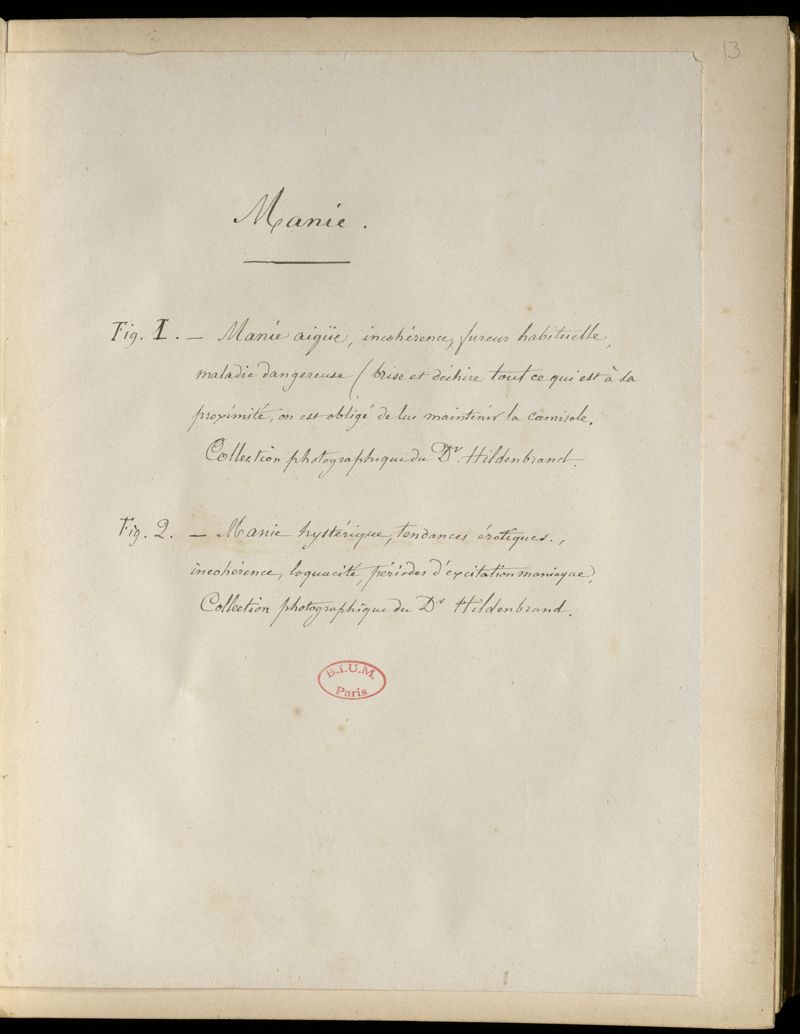 13
Manie.
Fig. I. — Manie aigüe, incohérence, fureur habituelle,
maladie dangereuse (brise et déchire tout ce qui est à sa
proximité, on est obligé de lui maintenir la camisole.
Collection photographique du Dr. Hildenbrand.
Fig. 2. — Manie hystérique, tendances érotiques.,
incohérence, loquacité, périodes d'excitation maniaque,
Collection photographique du Dr Hildenbrand.
B.I.U.M.
Paris